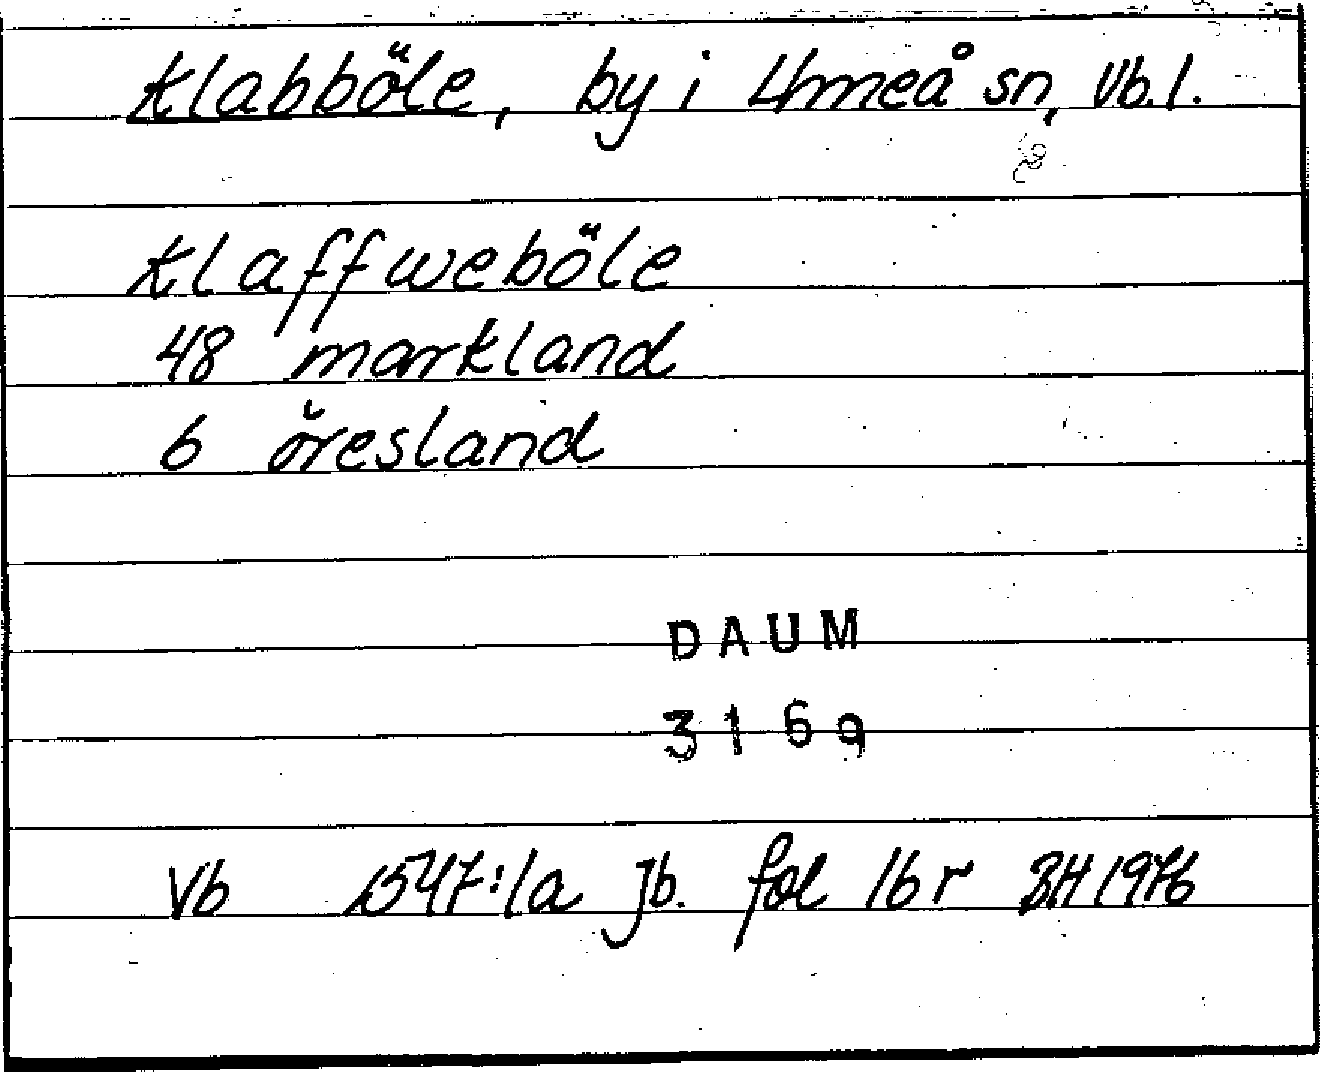 Klabböle, by i Umeå sn, Vb.l.
Klaffweböle
48 markland
6 öresland
DAUM
3169
Vb 1547:1a Jb. fol 16r BH 1976